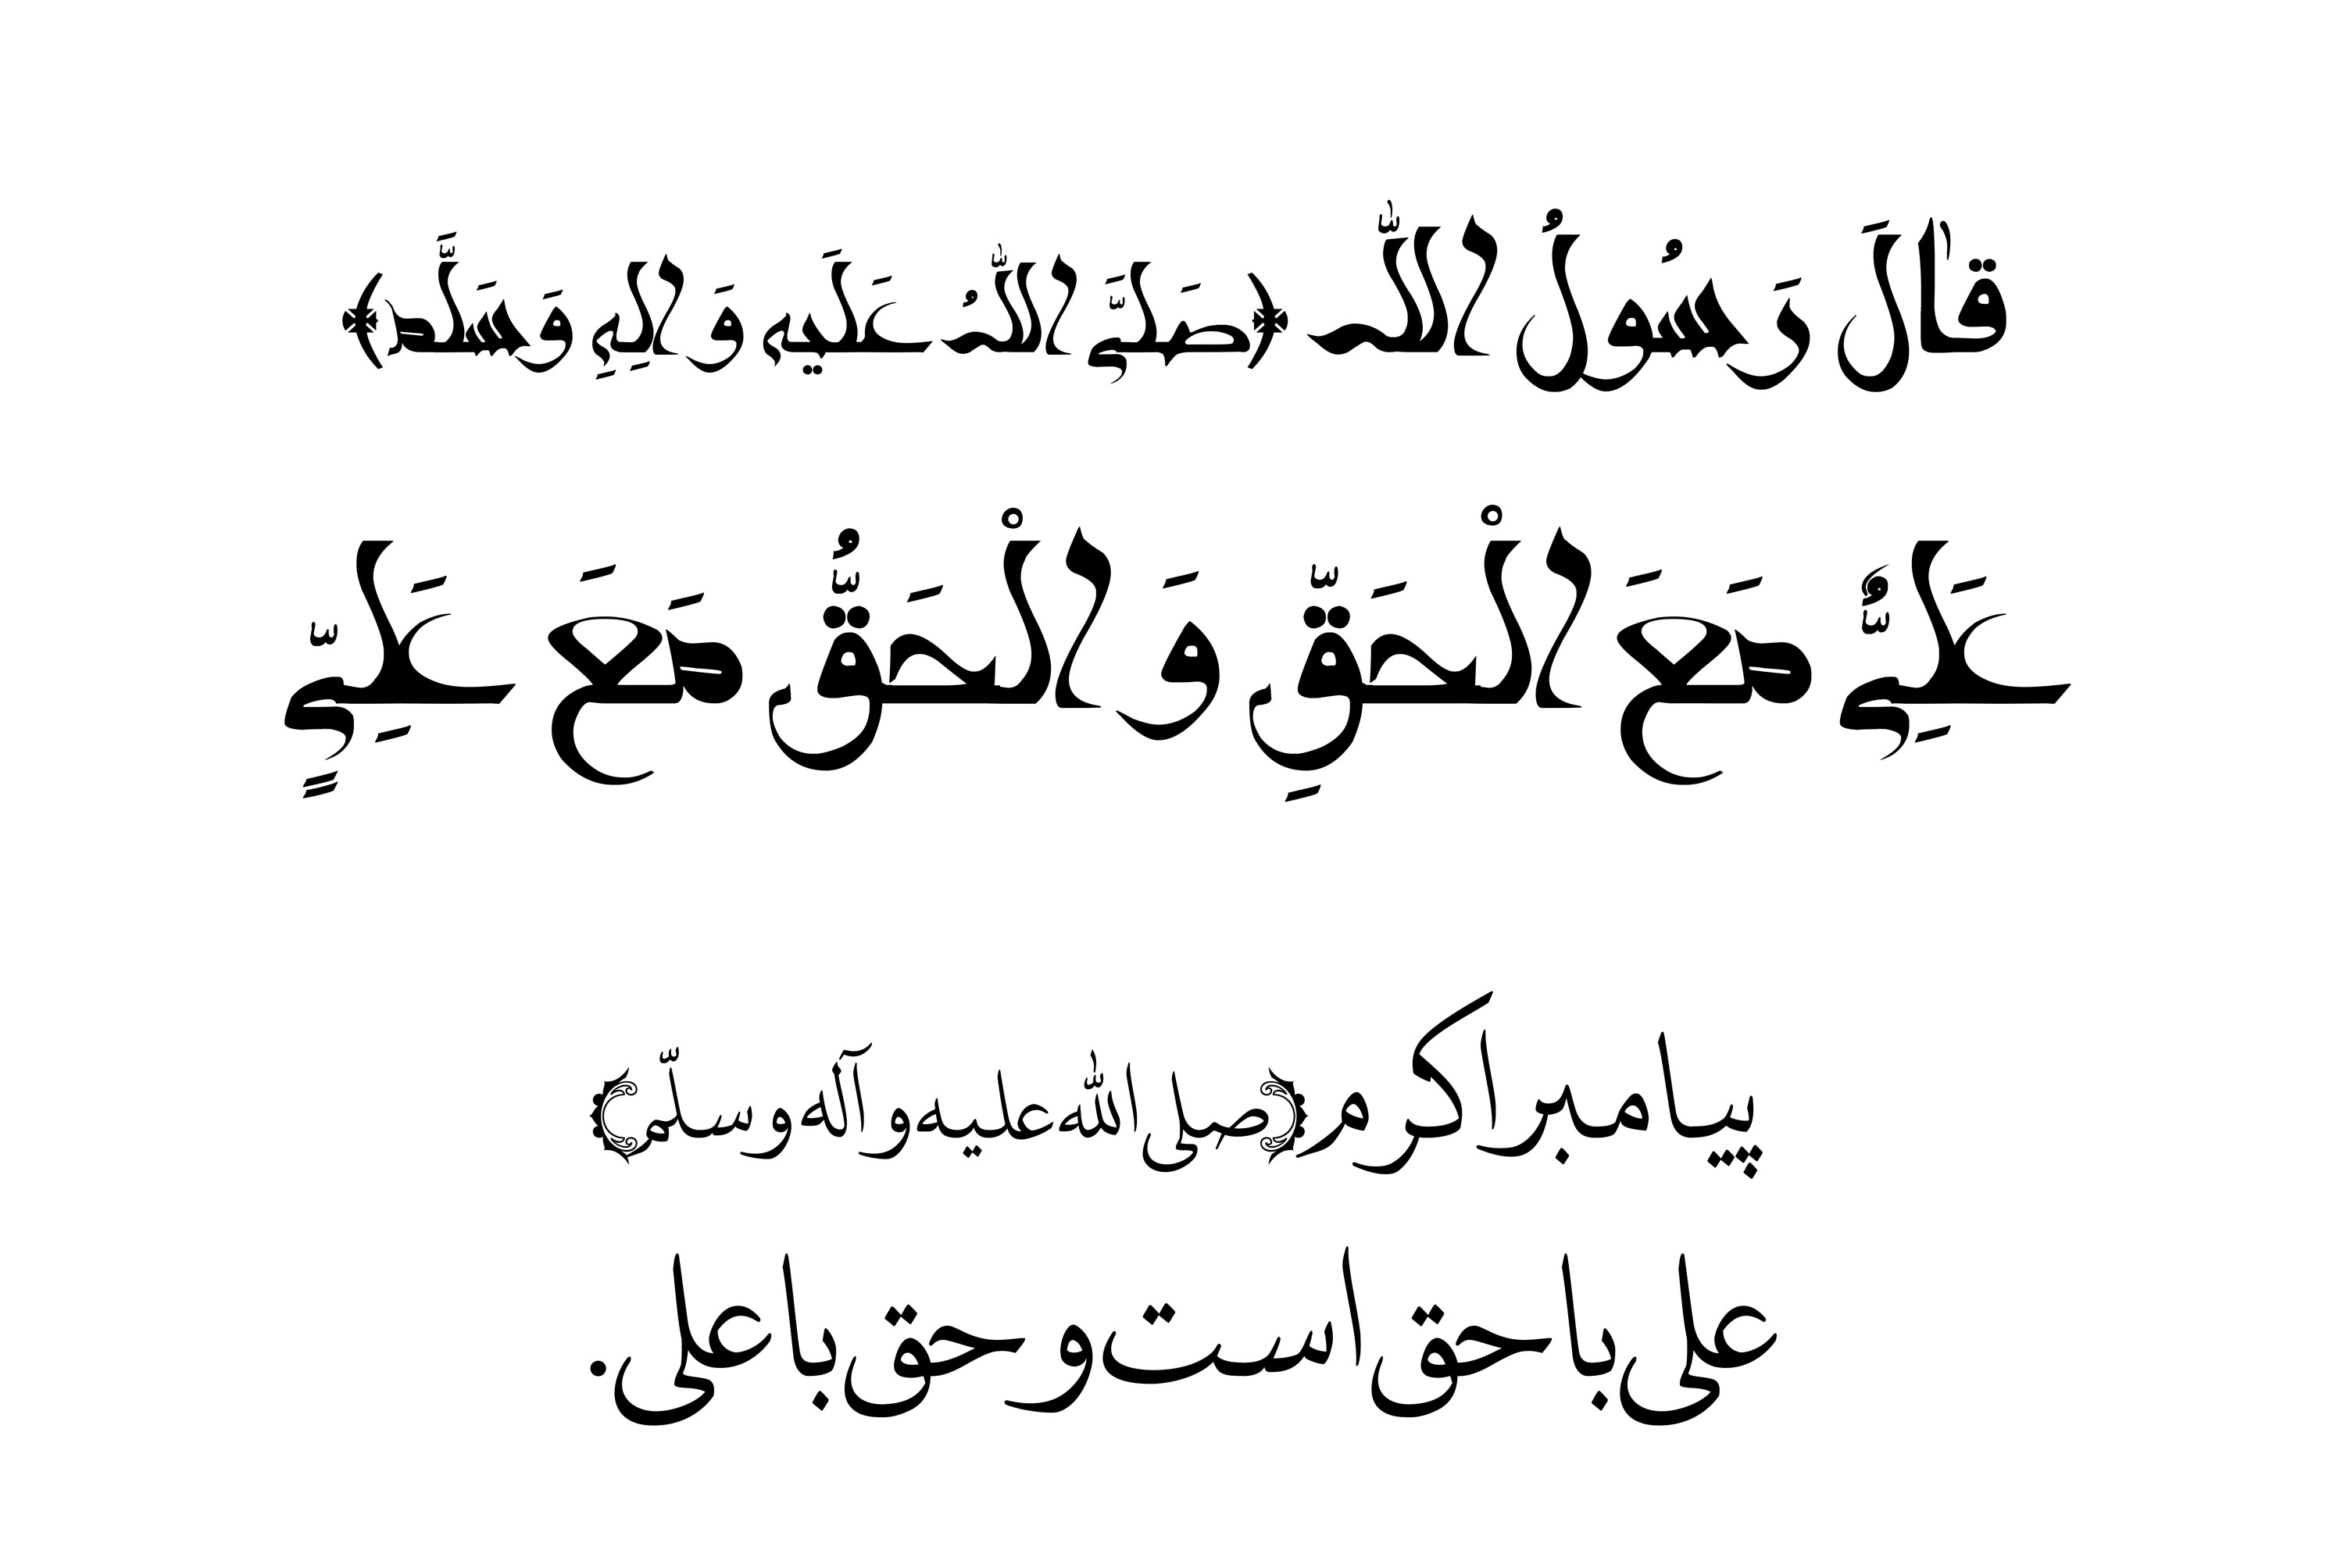 قَالَ رَسُولُ اللّٰه ﴿صَلَّى اللّٰهُ عَلَيْهِ وَالِهِ وَسَلَّم﴾
عَلِيٌّ مَعَ الْحَقِّ وَ الْحَقُّ مَعَ عَلِيٍّ
پیامبر اکرم ﴿صلی اللّٰه علیه و آله و سلّم﴾
علی با حق است و حق با علی.